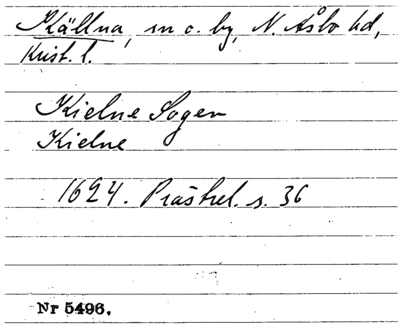 Källna, sn o. by, N. Åsbo hd,
Krist. l.
Kielne Sogen
Kielne
1624. Prästrel. s. 36
Nr 5496.